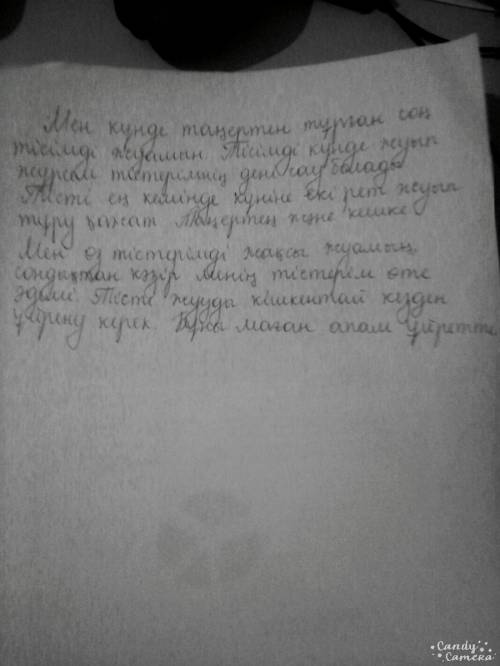 Мен күнде таңертең тұрған соң
тісімді жуамын. Тісімді күнде жуып
жүрсем тістерімнің дені сау болады
Тісті ең кемінде күніне екі рет жуып
тұру қажет. Таңертең және кешке
Мен өз тістерімді жақсы жуамын,
сондықтан қәзір менің тістерім өте
әдемі Тісті жууды кішкентай кезден
үйрену керек. Бұны маған апам үйретті.
Candy
Camera